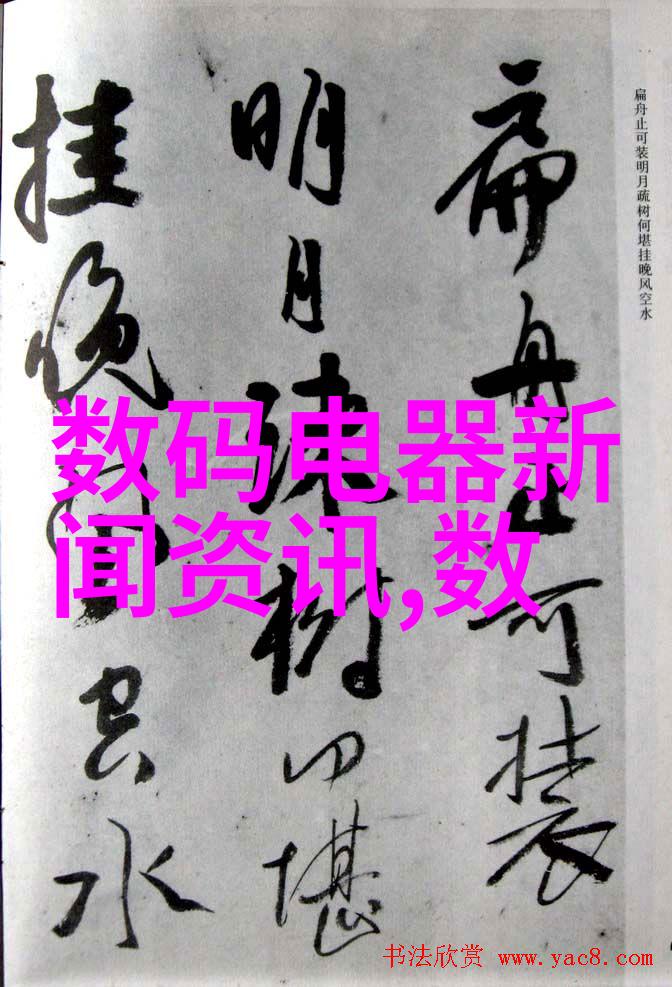 扁舟止可装
明月疏树何堪
挂晚风空水
扁舟止可装明月疏树何堪挂晚风空水
数码电器新
闻资讯,数
书法欣赏 www.yac8.com